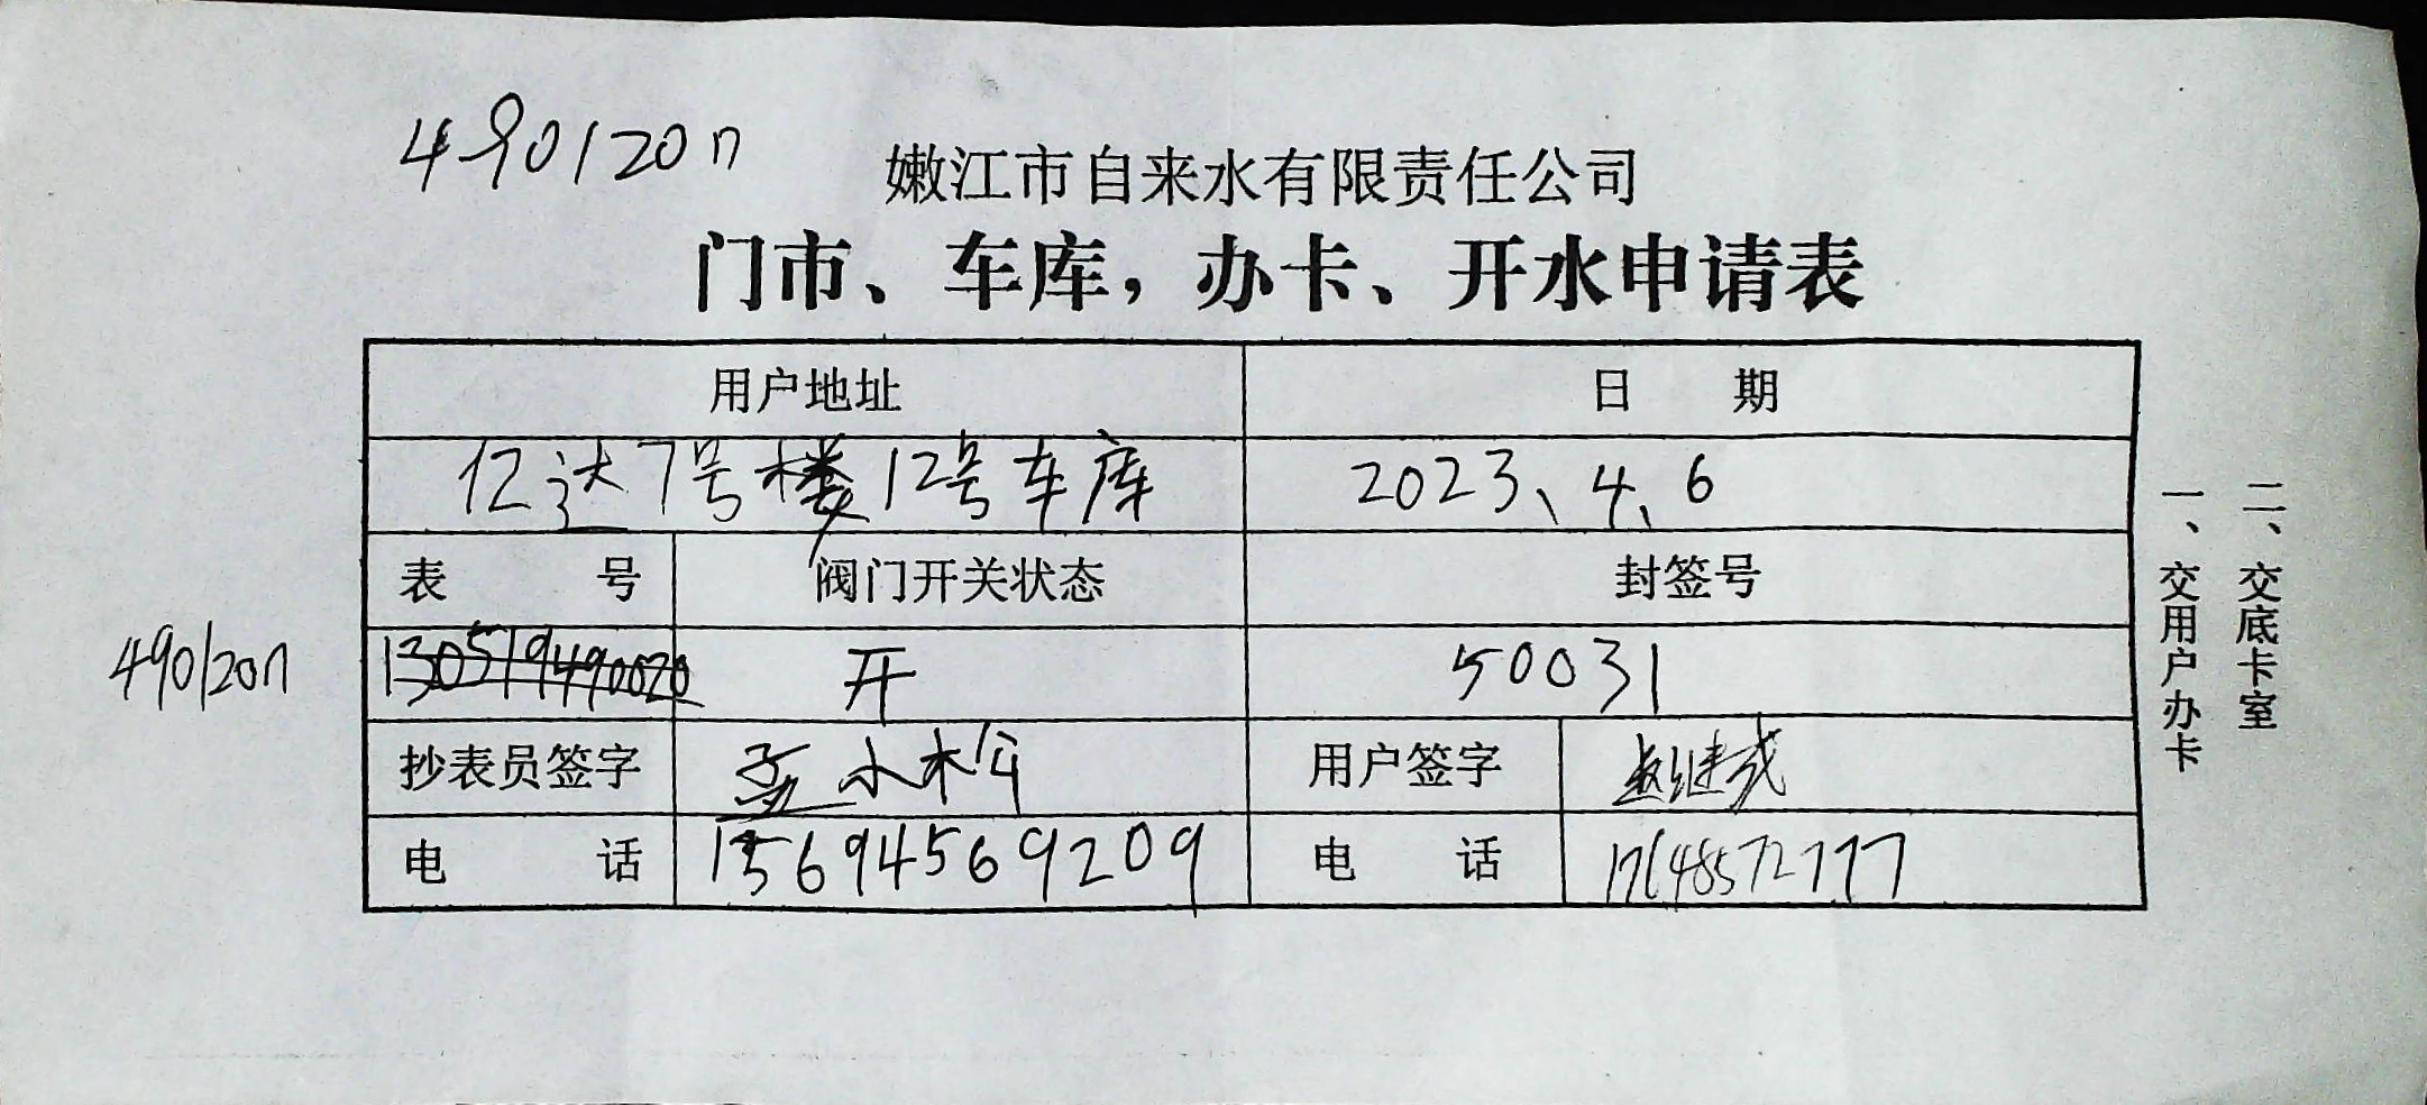 4901207
嫩江市自来水有限责任公司
门市、车库，办卡、开水申请表
用户地址 日 期
亿达7号楼12号车库 2023、4、6
表 号 阀门开关状态 封签号
4901207 130519490020 开 50031
抄表员签字 孟小松 用户签字 赵继成
电 话 15694569209 电 话 17648572777
一、交用户办卡
二、交底卡室